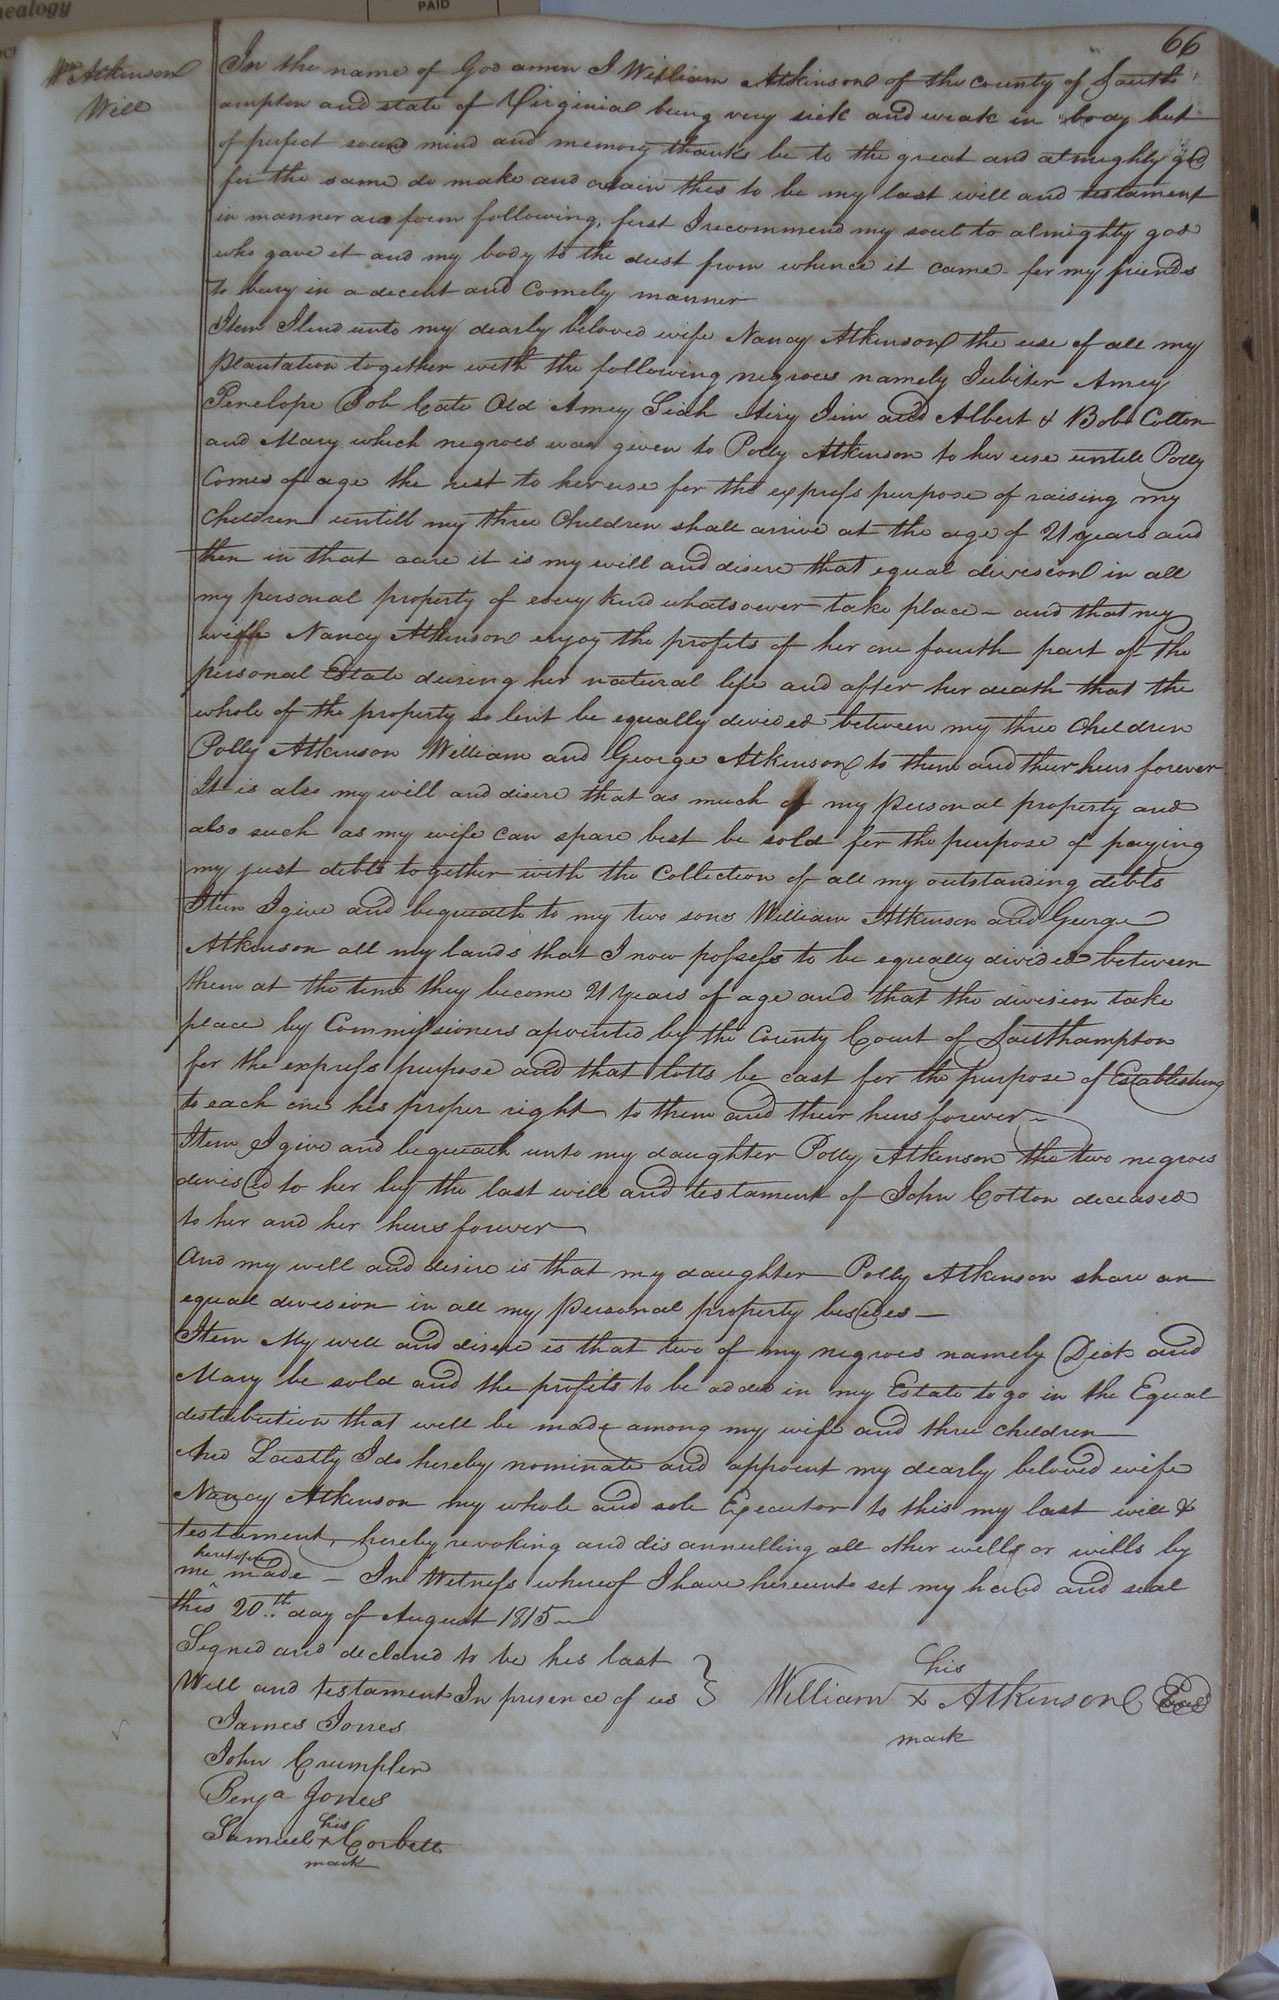 nealogy
PAID
66
Wm Atkinson
Will
In the name of God amen I William Atkinson of the county of South
ampton and state of Virginia being very sick and weak in body but
of perfect sound mind and memory thanks be to the great and almighty god
for the same do make and ordain this to be my last will and testament
in manner and form following, first I recommend my soul to almighty god
who gave it and my body to the dust from whence it came for my friends
to bury in a decent and Comely manner
Item I lend unto my dearly beloved wife Nancy Atkinson the use of all my
Plantation together with the following negroes namely Jubiter Amey
Penelope Bob Cate Old Amey Siah Airy Jim and Albert & Bob Cotton
and Mary which negroes was given to Polly Atkinson to her use untill Polly
Comes of age the rest to her use for the express purpose of raising my
Children untill my three Children shall arrive at the age of 21 years and
then in that care it is my will and disire that equal division in all
my personal property of every kind whatsoever take place - and that my
wife Nancy Atkinson enjoy the profits of her one fourth part of the
personal Estate during her natural life and after her death that the
whole of the property so lent be equally divided between my three Children
Polly Atkinson William and George Atkinson to them and their heirs forever
It is also my will and disire that as much of my personal property and
also such as my wife can spare best be sold for the purpose of paying
my just debts together with the Collection of all my outstanding debts
Item I give and bequeath to my two sons William Atkinson and George
Atkinson all my lands that I now possess to be equally divided between
them at the time they become 21 years of age and that the division take
place by Commissioners apointed by the County Court of Southampton
for the express purpose and that lotts be cast for the purpose of Establishing
to each one his proper right to them and their heirs forever -
Item I give and bequeath unto my daughter Polly Atkinson the two negroes
devised to her by the last will and testament of John Cotton deceased
to her and her heirs forever
And my will and desire is that my daughter Polly Atkinson share an
equal division in all my personal property besides -
Item My will and disire is that two of my negroes namely Dick and
Mary be sold and the profits to be added in my Estate to go in the Equal
distribution that will be made among my wife and three children
And Lastly I do hereby nominate and appoint my dearly beloved wife
Nancy Atkinson my whole and sole Executor to this my last will &
testament, hereby revoking and disannulling all other wills or wills by
heretofore
me made - In Witness whereof I have hereunto set my hand and seal
this 20th day of August 1815 -
Signed and declared to be his last
Will and testament In presence of us }
his
William x Atkinson Seal
mark
James Jones
John Crumpler
Benja Jones
his
Samuel x Corbell
mark